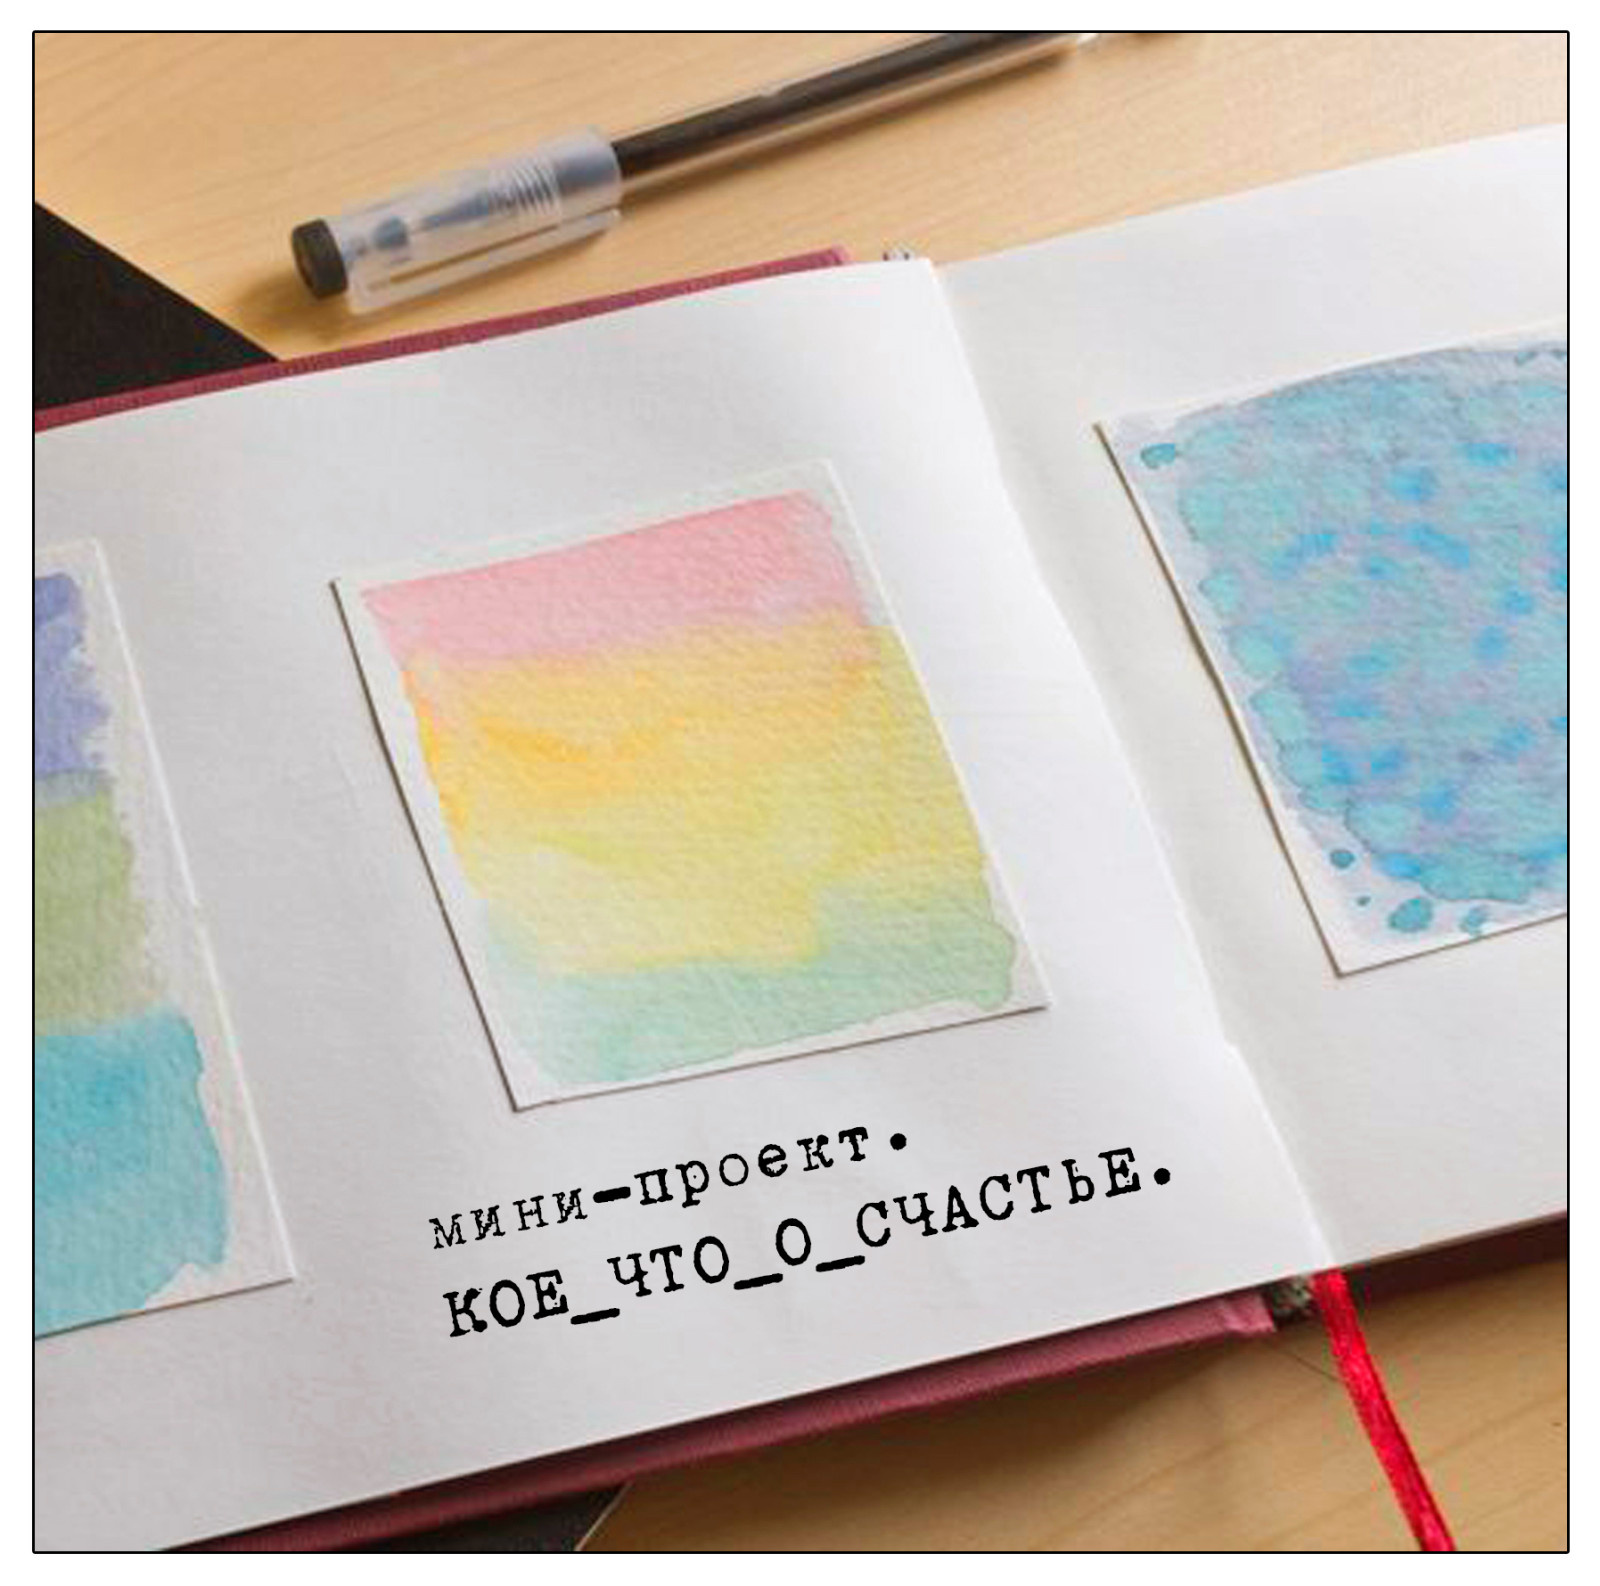 мини-проект.
КОЕ_ЧТО_О_СЧАСТЬЕ.